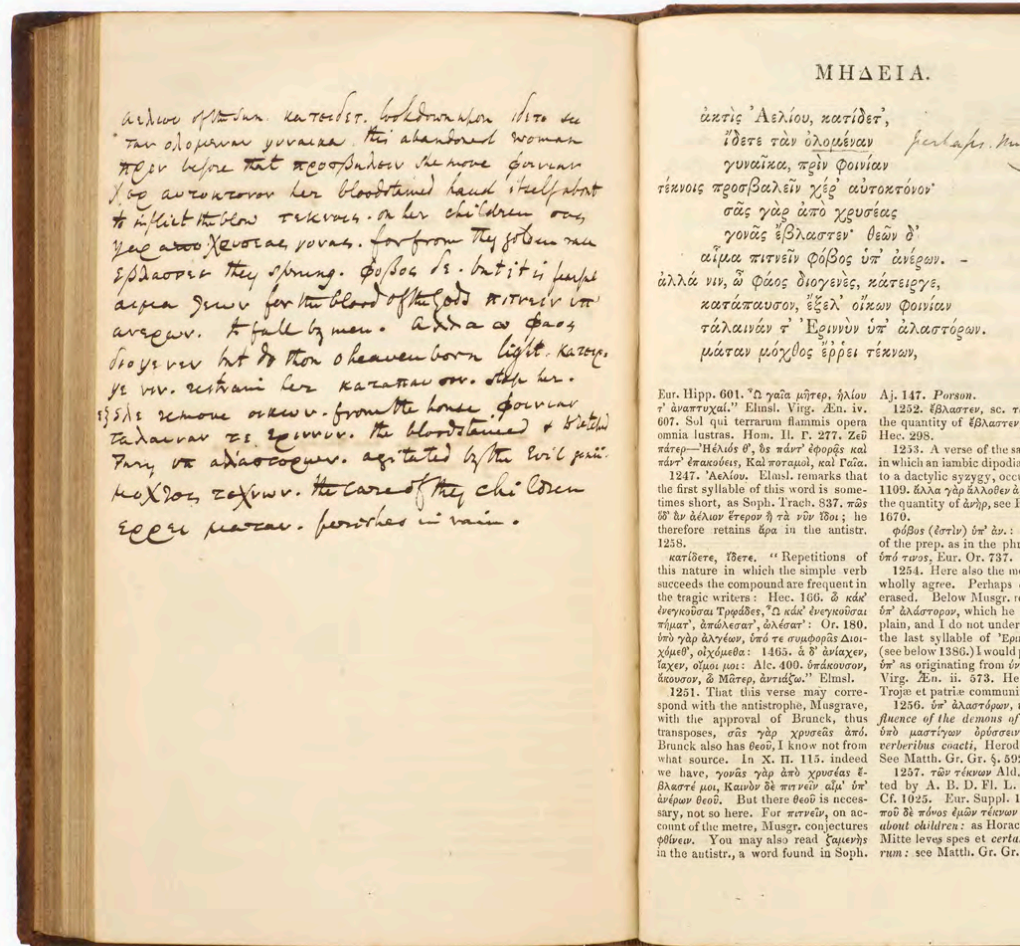 αελιου of the Sun. κατειδετ. look down upon ιδετε see
ταν ολομεναν γυναικα. this abandoned woman
πριν before that προσβαλειν she move φοινιαν
χερ αυτοκτονον her bloodstained hand itself about
to inflict the blow τεκνοις. on her children σας
γαρ απο χρυσεας γονας. for from thy golden race
εβλαστεν they sprung. φοβος δε. but it is fearful
αιμα θεων for the blood of the Gods πιτνειν υπ
ανερων. to fall by men. αλλα ω φαος
διογενες but do thou o heavenborn light. κατειρ-
γε νιν. restrain her καταπαυσον. stop her.
εξελε remove οικων. from the house. φοινιαν
ταλαιναν τε εριννυν. the bloodstained & wretched
Fury υπ αλαστορων. agitated by the Evil
μοχθος τεκνων. the care of thy children
ερρει ματαν. perishes in vain.
ΜΗΔΕΙΑ.
ἀκτὶς Ἀελίου, κατίδετ',
ἴδετε τὰν ὀλομέναν perhaps.
γυναῖκα, πρὶν φοινίαν
τέκνοις προσβαλεῖν χέρ' αὐτοκτόνον·
σᾶς γὰρ ἀπὸ χρυσέας
γονᾶς ἔβλαστεν· θεῶν δ'
αἷμα πιτνεῖν φόβος ὑπ' ἀνέρων. -
ἀλλά νιν, ὦ φάος διογενὲς, κάτειργε,
κατάπαυσον, ἔξελ' οἴκων φοινίαν
τάλαινάν τ' Ἐριννὺν ὑπ' ἀλαστόρων.
μάταν μόχθος ἔῤῥει τέκνων,
Eur. Hipp. 601. "Ὦ γαῖα μῆτερ, ἡλίου
τ' ἀναπτυχαί." Elmsl. Virg. Æn. iv.
607. Sol qui terrarum flammis opera
omnia lustras. Hom. Il. Γ. 277. Ζεῦ
πάτερ—Ἠέλιός θ', ὃς πάντ' ἐφορᾷς καὶ
πάντ' ἐπακούεις, Καὶ ποταμοὶ, καὶ Γαῖα.
1247. Ἀελίου. Elmsl. remarks that
the first syllable of this word is some-
times short, as Soph. Trach. 837. πῶς
ὅδ' ἂν ἀέλιον ἕτερον ἢ τὰ νῦν ἴδοι; he
therefore retains ἄρα in the antistr.
1258.
κατίδετε, ἴδετε. "Repetitions of
this nature in which the simple verb
succeeds the compound are frequent in
the tragic writers: Hec. 166. ὦ κάκ'
ἐνεγκοῦσαι Τρῳάδες, Ὦ κάκ' ἐνεγκοῦσαι
πήματ', ἀπώλεσατ', ὠλέσατ': Or. 180.
ὑπὸ γὰρ ἀλγέων, ὑπό τε συμφορᾶς Διοι-
χόμεθ', οἰχόμεθα: 1465. ἁ δ' ἀνίαχεν,
ἴαχεν, οἴμοι μοι: Alc. 400. ὑπάκουσον,
ἄκουσον, ὦ Μᾶτερ, ἀντιάζω." Elmsl.
1251. That this verse may corre-
spond with the antistrophe, Musgrave,
with the approval of Brunck, thus
transposes, σᾶς γὰρ χρυσεᾶς ἀπό.
Brunck also has θεοῦ, I know not from
what source. In X. Π. 115. indeed
we have, γονᾶς γὰρ ἀπὸ χρυσέας ἔ-
βλαστέ μοι, Καινὸν δὲ πιτνεῖν αἷμ' ὑπ'
ἀνέρων θεοῦ. But there θεοῦ is neces-
sary, not so here. For πιτνεῖν, on ac-
count of the metre, Musgr. conjectures
φθίνειν. You may also read ζαμενὴς
in the antistr., a word found in Soph.
Aj. 147. Person.
1252. ἔβλαστεν, sc.
the quantity of ἔβλαστεν
Hec. 298.
1253. A verse of the sa
in which an iambic dipodia
to a dactylic syzygy, occu
1109. ἄλλα γὰρ ἄλλοθεν
the quantity of ἀνήρ, see
1670.
φόβος (ἐστὶν) ὑπ' ἀν.:
of the prep. as in the phr
ὑπό τινος, Eur. Or. 737.
1254. Here also the me
wholly agree. Perhaps
erased. Below Musgr. r
ὑπ' ἀλάστορον, which he
plain, and I do not under
the last syllable of Ἐρι
(see below 1386.) I would
ὑπ' as originating from ὑν
Virg. Æn. ii. 573. He
Trojæ et patriæ communi
1256. ὑπ' ἀλαστόρων,
fluence of the demons of
ὑπὸ μαστίγων ὀρύσσειν
verberibus coacti, Herod
See Matth. Gr. Gr. §. 592
1257. τῶν τέκνων Ald.
ted by A. B. D. Fl. L.
Cf. 1025. Eur. Suppl. 1
ποῦ δὲ πόνος ἐμῶν τέκνων
about children: as Horac
Mitte leves spes et certa
rum: see Matth. Gr. Gr.